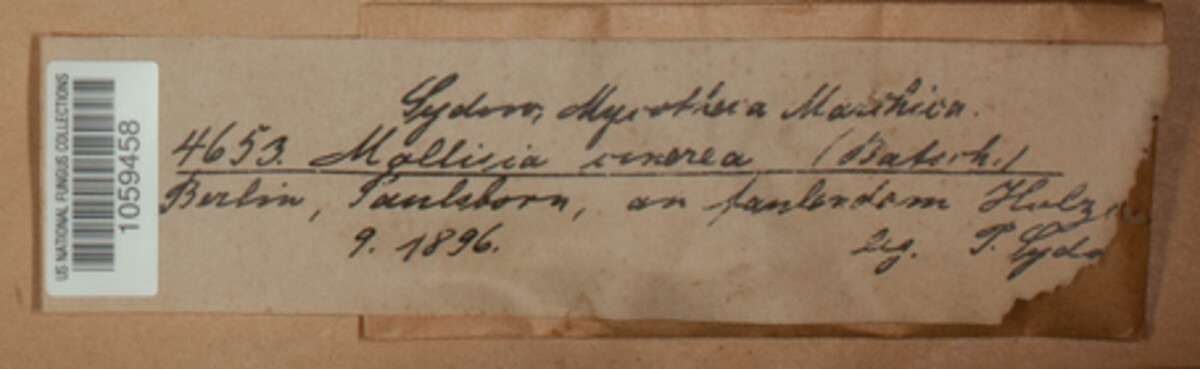 US NATIONAL FUNGUS COLLECTIONS
1059458
Sydow, Mycotheca Marchica.
4653. Mollisia cinerea (Batsch.)
Berlin, Paulsborn, an faulendem Holze
9. 1896. leg. P. Sydo